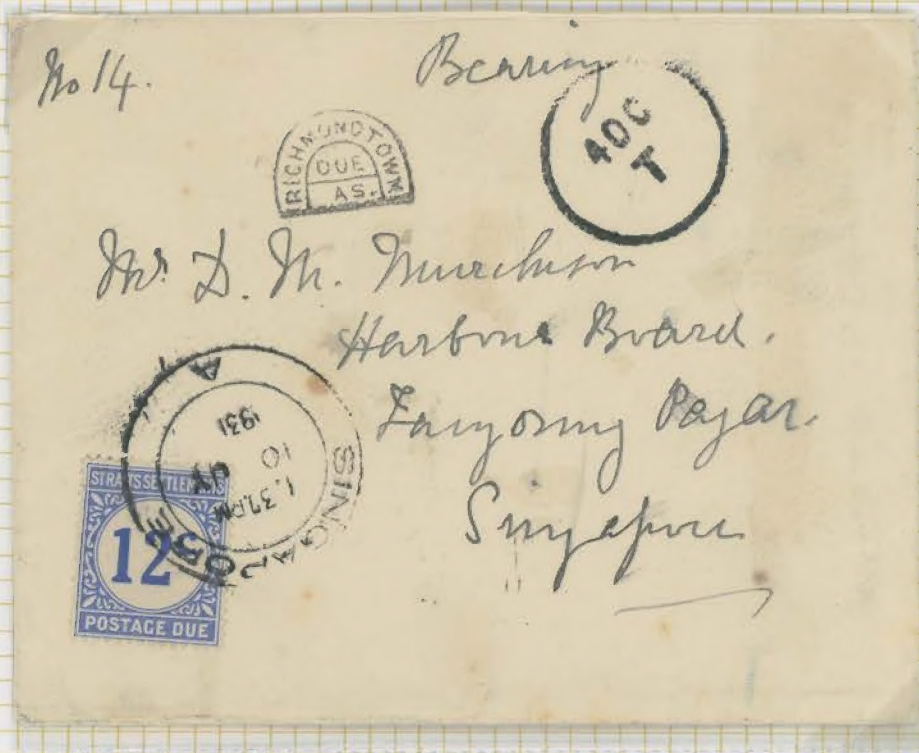 No 14.
Bearing
40C
T
RICHMONDTOWN
DUE
AS.
Mr. D. M. Murchison
Harbour Board.
Tanjong Pagar.
Singapore
SINGAPORE
A
1.30PM
10
1931
STRAITS SETTLEMENTS
12c
POSTAGE DUE